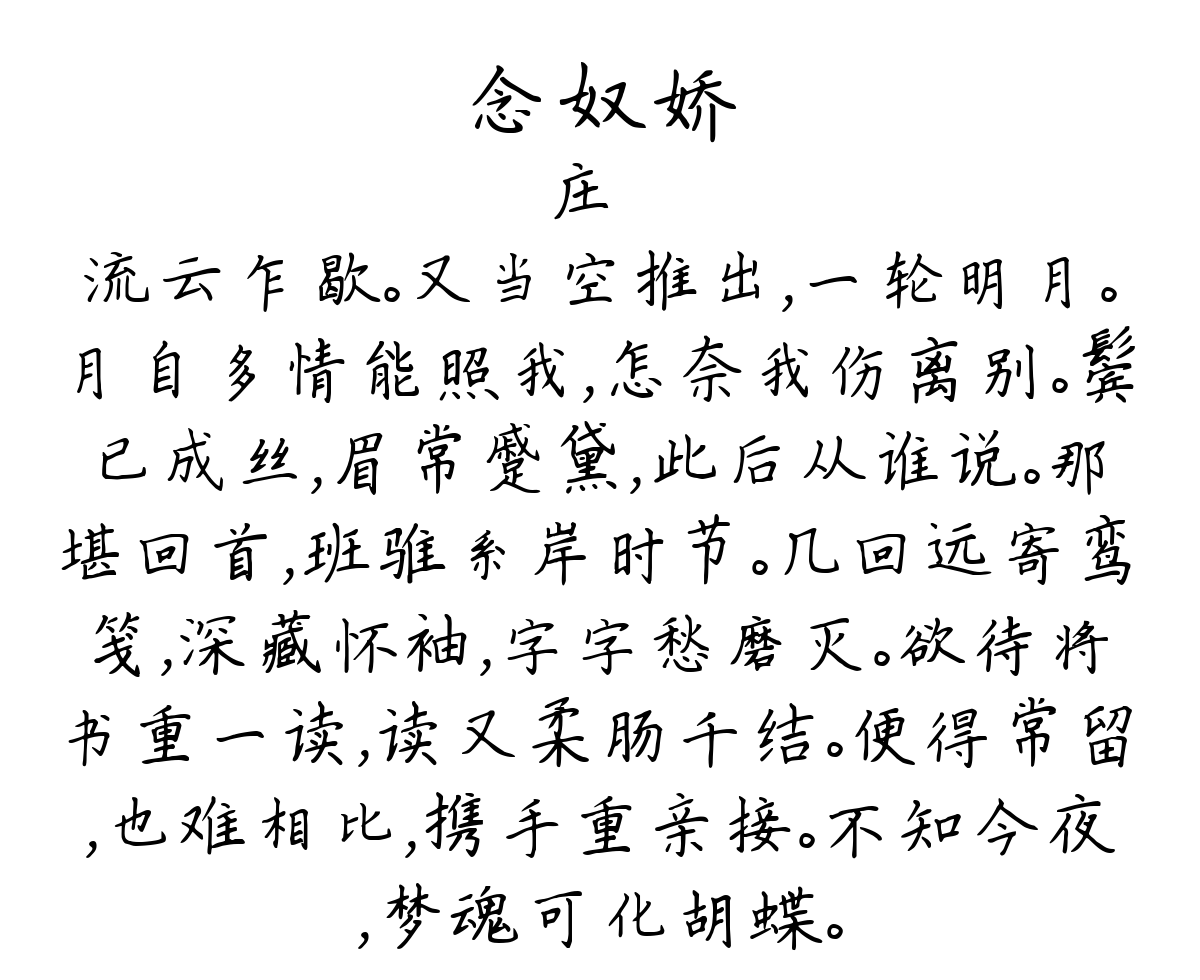 念奴娇
庄
流云乍歇。又当空推出,一轮明月。
月自多情能照我,怎奈我伤离别。鬓
已成丝,眉常蹙黛,此后从谁说。那
堪回首,班骓系岸时节。几回远寄鸾
笺,深藏怀袖,字字愁磨灭。欲待将
书重一读,读又柔肠千结。便得常留
,也难相比,携手重亲接。不知今夜
,梦魂可化胡蝶。